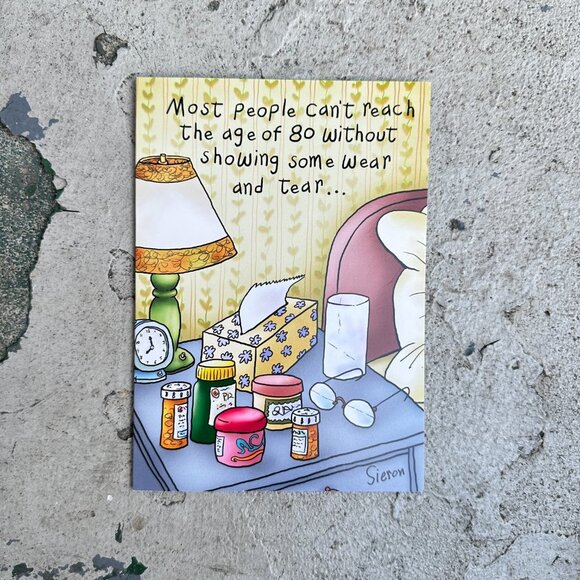 Most people can't reach
the age of 80 without
showing some wear
and tear...
Sieron